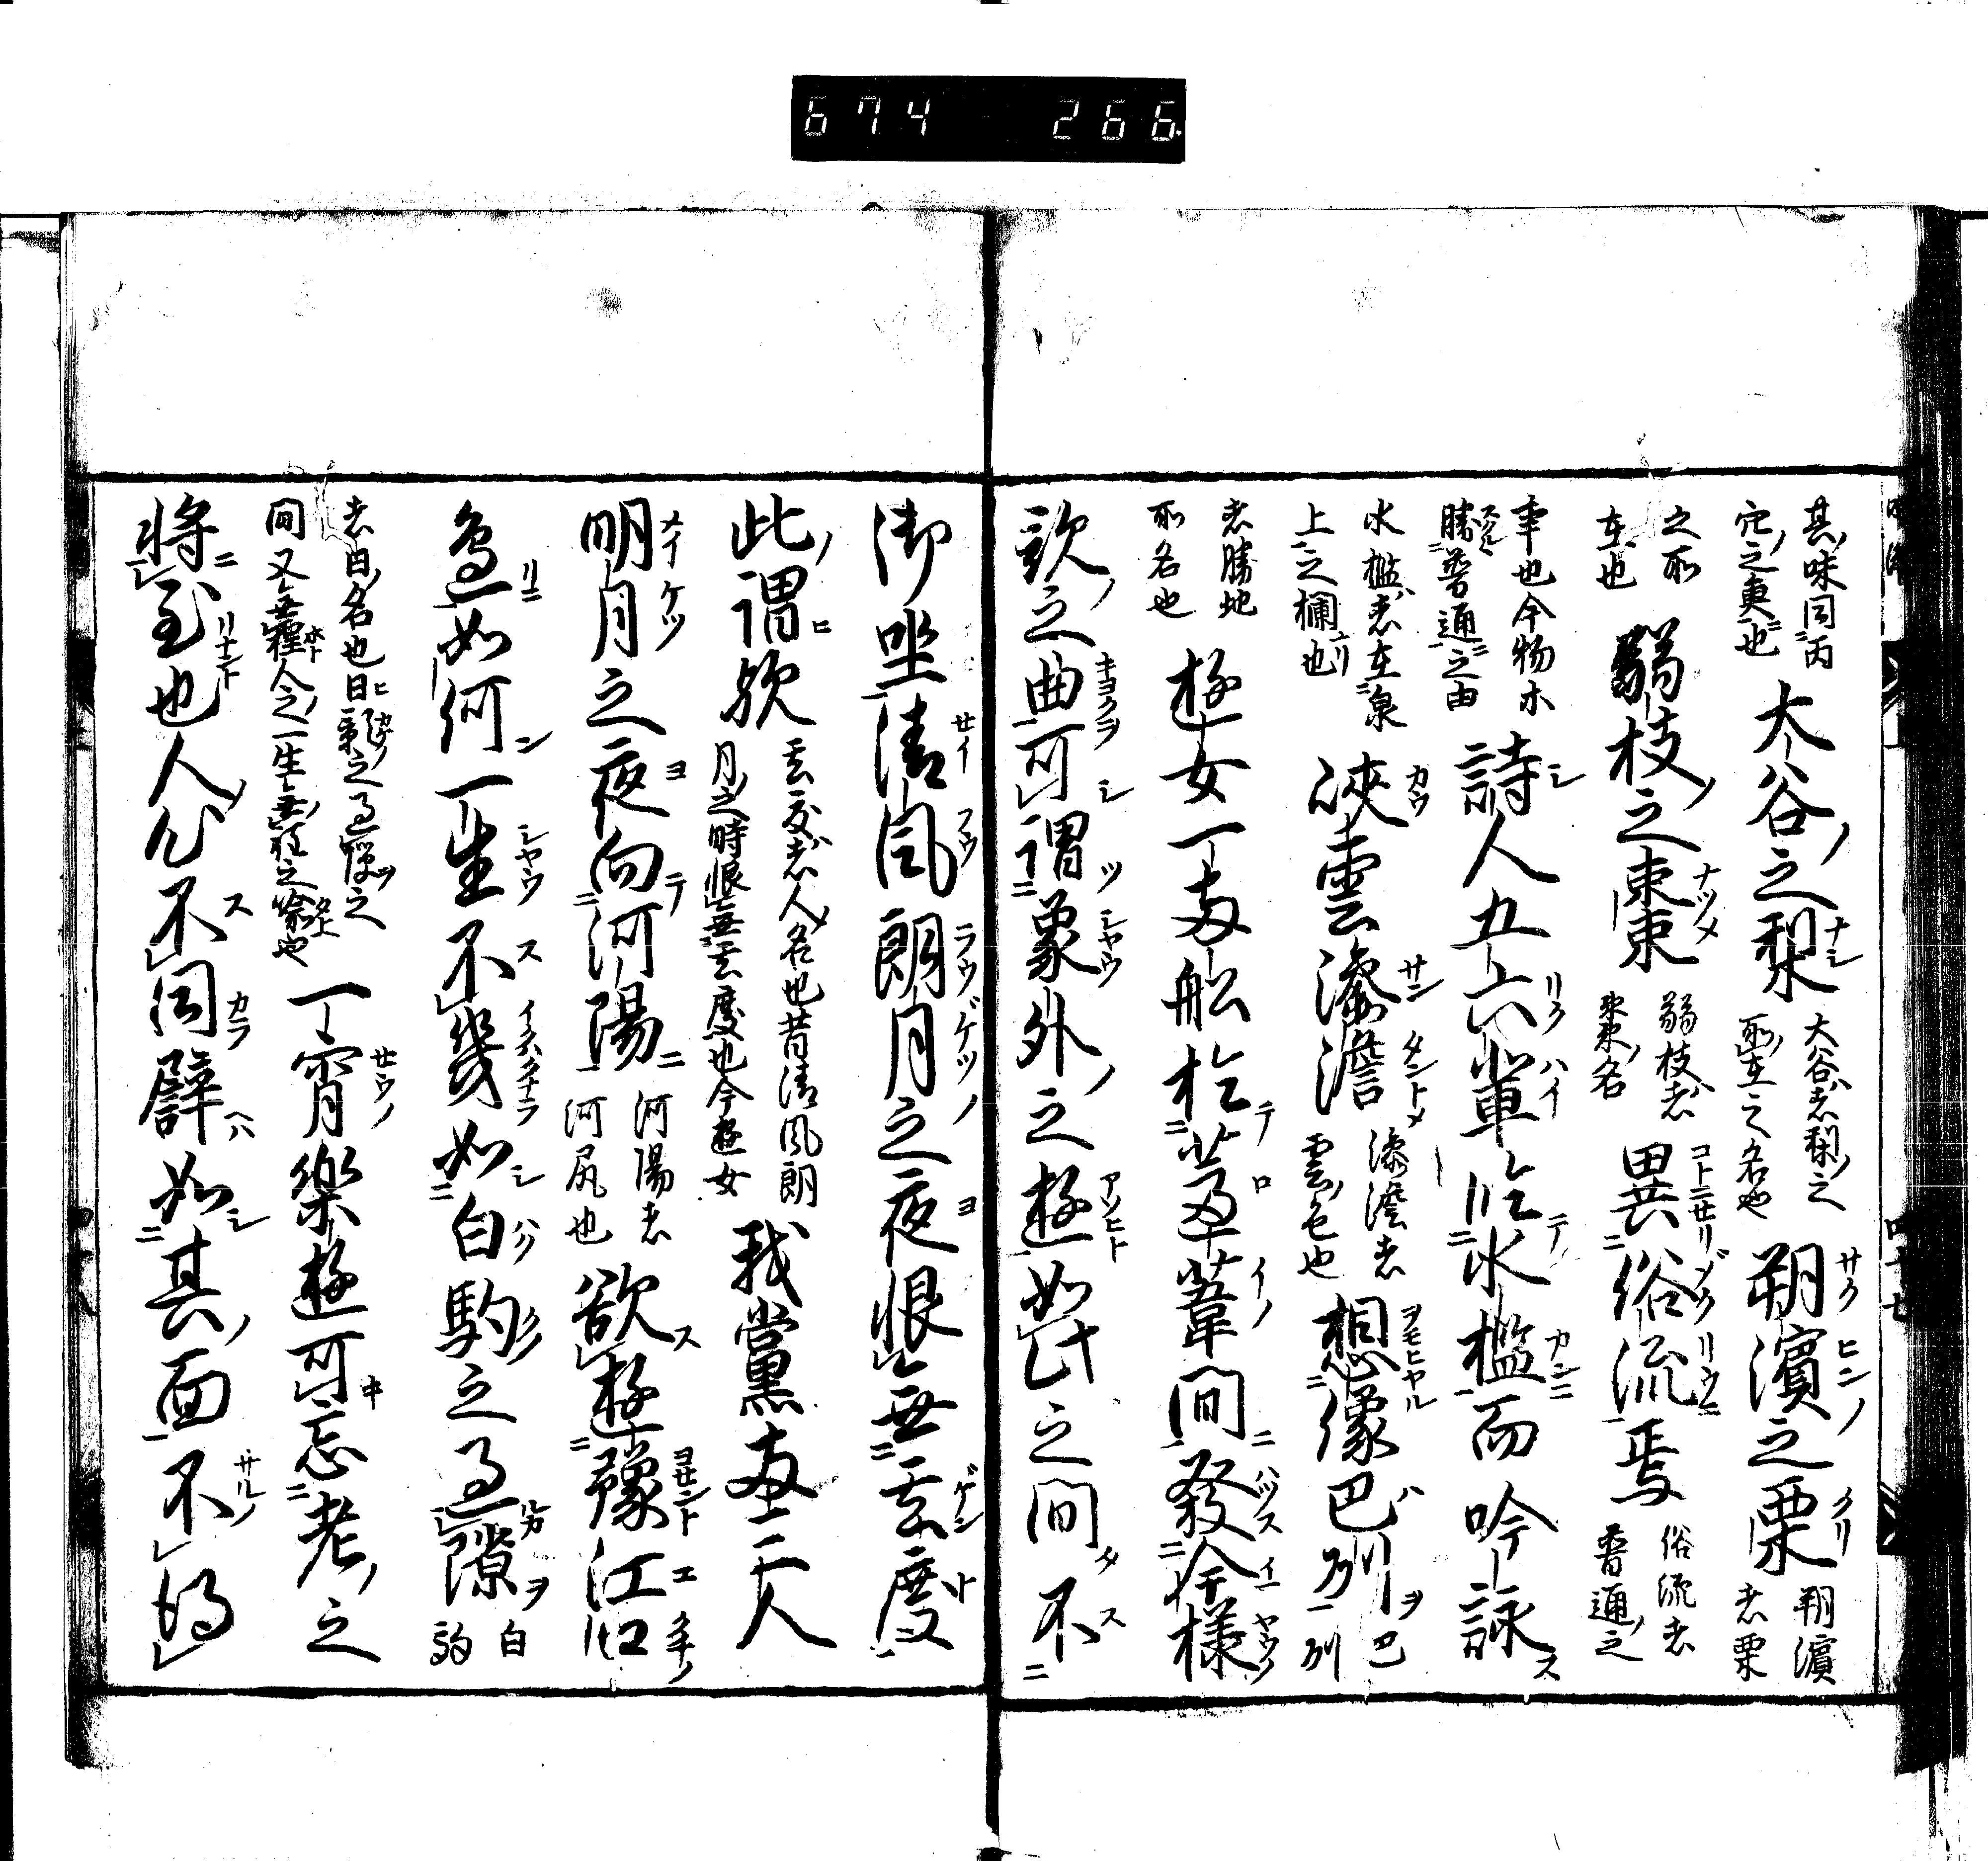 674 266
其味同丙
穴之東也
大谷之梨
大谷者梨之
所在之名也
朔濱之栗
朔濱
者栗
之所
在也
弱枝之棗
弱枝者
棗名
異俗流焉
俗流者
普通之
事也今物亦
勝普通之由
詩人五六輩臨水檻而吟詠
水檻者在泉
上之欄也
峽雲澹
雲色也
想像巴列
巴
列
者勝地
所名也
遊女一両船於蘆葦間發今様
歌之曲可謂象外之遊如此之間不
御坐清風朗月之夜恨無玄度
此謂歟
玄度者人名也昔清風朗
月之時恨無玄度也今遊女
我黨両三人
明月之夜向河陽
河陽者
河尻也
欲遊豫江口
邊如何一生不幾如白駒之過隙
白
駒
者日名也日景之過隙之
間又無程人之一生無程之喩也
一宵樂遊可忘老之
將至也人心不同譬如其面不得